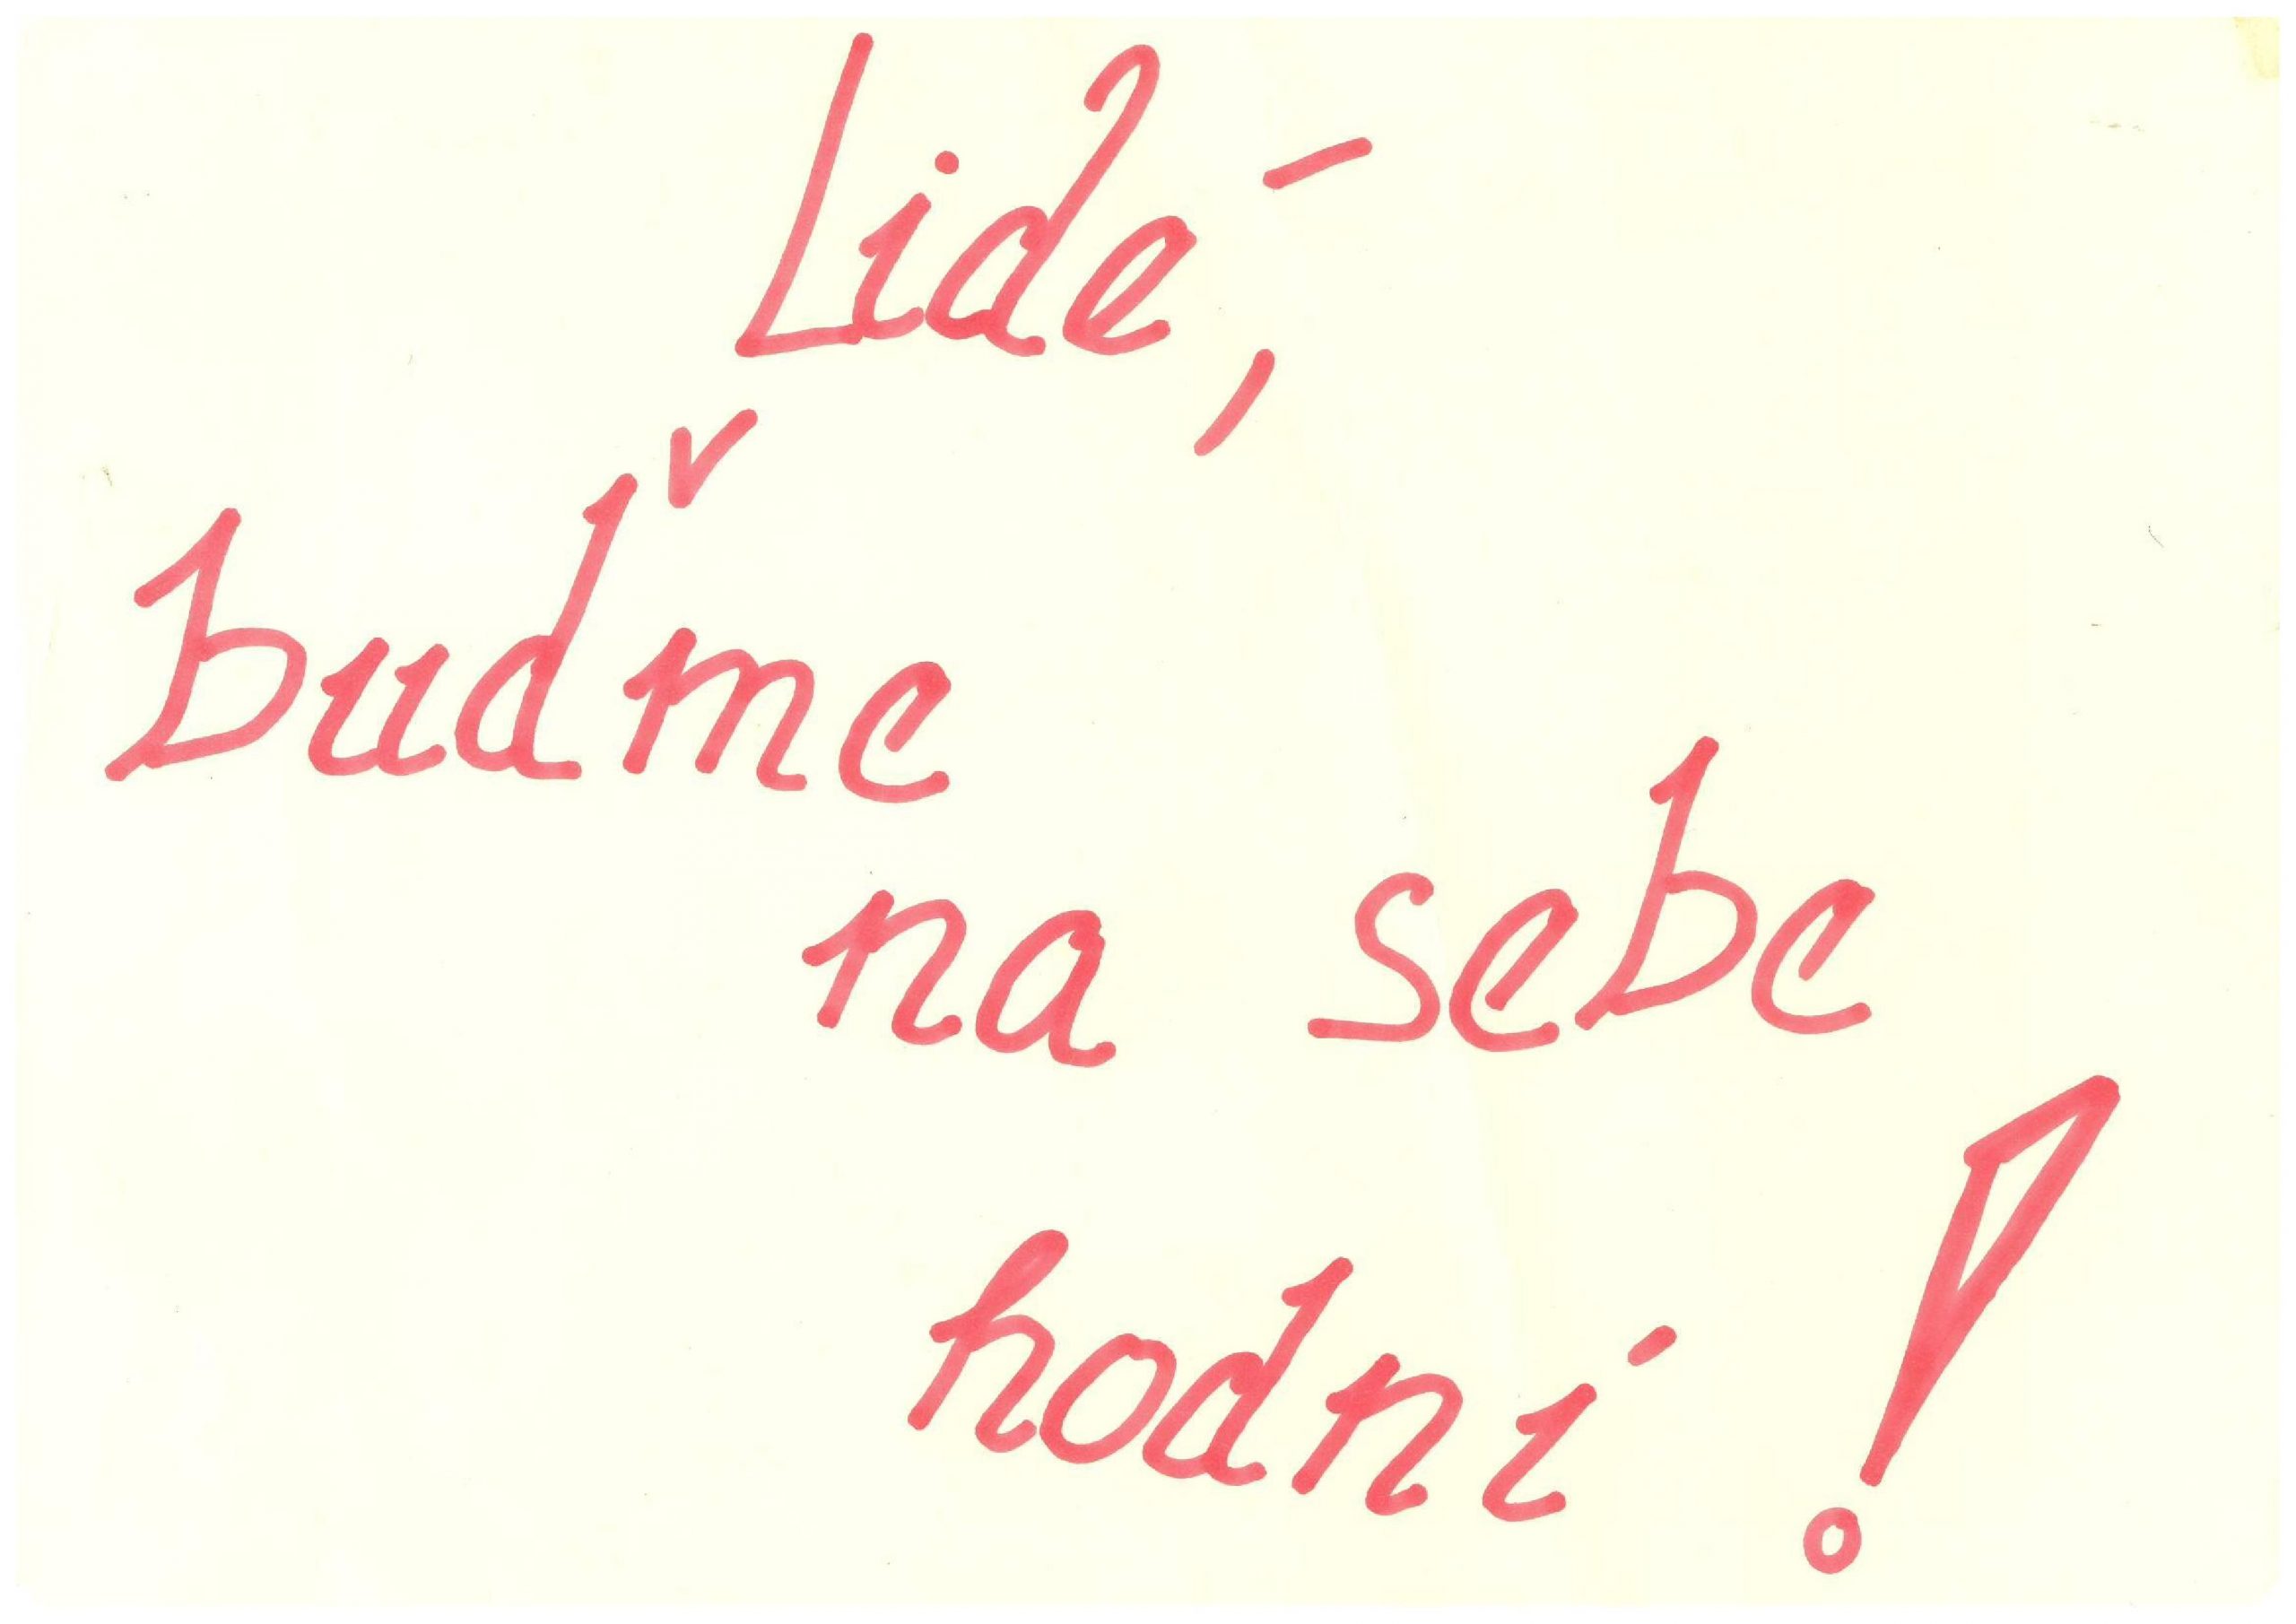 Lidé,
buďme
na sebe
hodni!